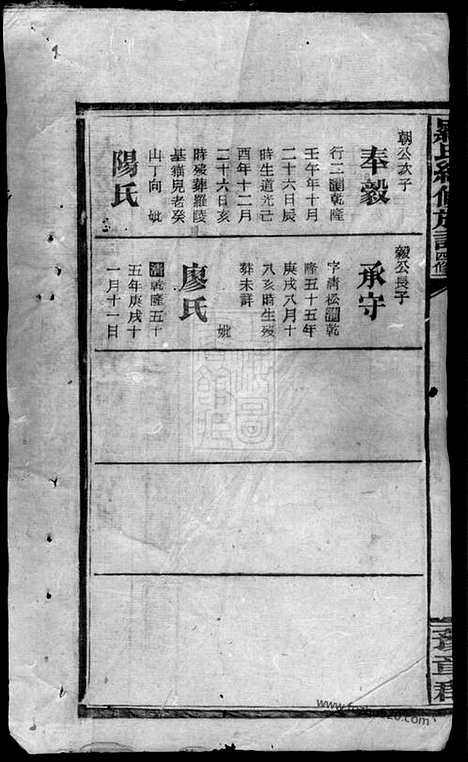 氏
修族
四修
朝公次子
奉毅
行二清乾隆
壬午年十月
二十六日辰
時生道光己
酉年十二月
二十六日亥
時殁葬羅陵
基猫兒老癸
山丁向 妣
陽氏
毅公長子
承守
字清松清乾
隆五十五年
庚戌八月十
八亥時生殁
葬未詳
妣
廖氏
清乾隆五十
五年庚戌十
一月十一日
豫章郡